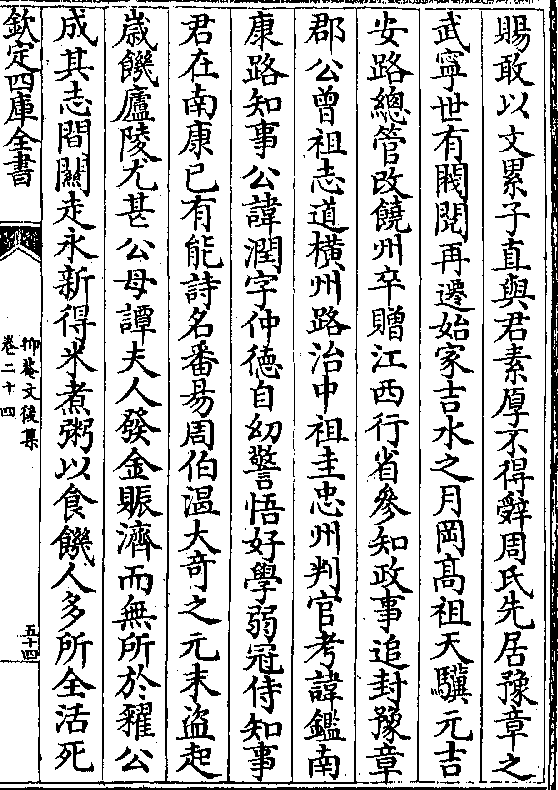 賜敢以文累子直與君素厚不得辭周氏先居豫章之
武寧世有閥閱再遷始家吉水之月岡高祖天驥元吉
安路總管改饒州卒贈江西行省參知政事追封豫章
郡公曾祖志道橫州路治中祖圭忠州判官考諱鑑南
康路知事公諱潤字仲德自幼警悟好學弱冠侍知事
君在南康已有能詩名番昜周伯溫大奇之元末盜起
歲饑廬陵尤甚公母譚夫人發金賑濟而無所於糴公
成其志間關走永新得米煮粥以食饑人多所全活死
欽定四庫全書
抑菴文後集
卷二十四
五十四